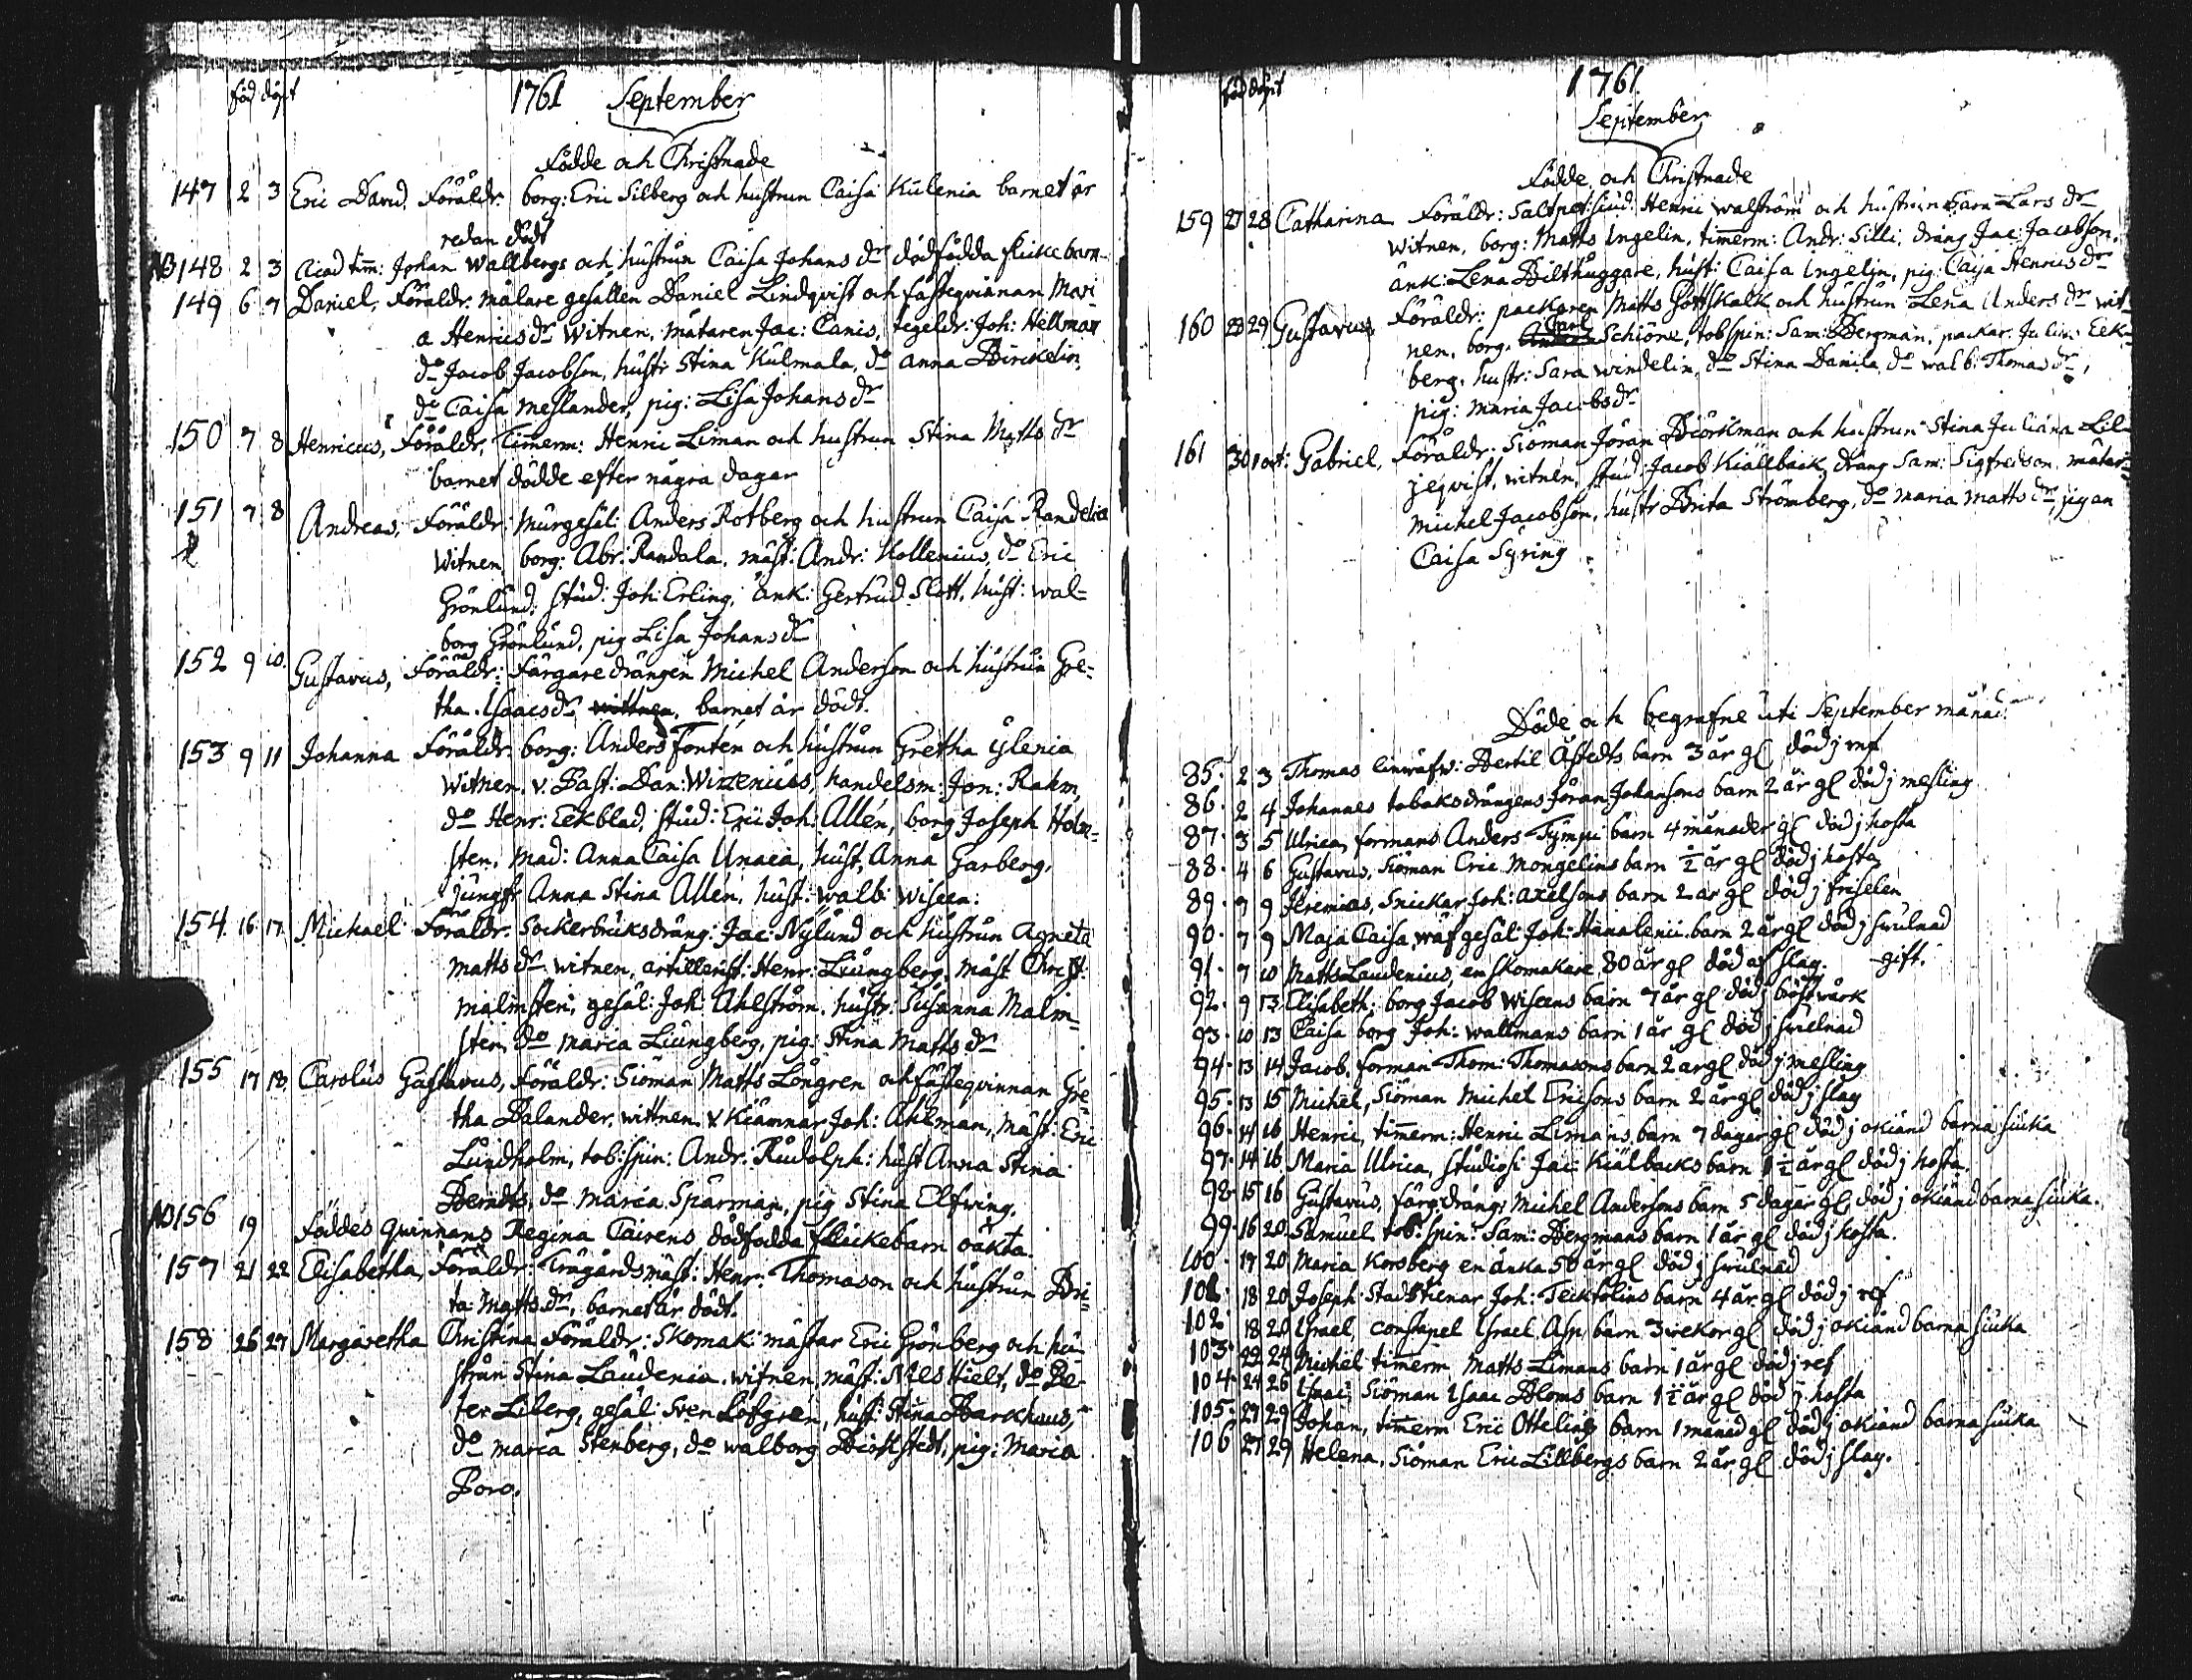 föd döpt
1761 September
Födde och Christnade
147 2 3 Eric David. Föräldr: borg: Eric Silberg och hustrun Caisa Kulenia barnet är
redan dödt
NB 148 2 3 Acad timm: Johan Wallbergs och hustrun Caisa Johans dr dödfödda flickebarn
149 6 7 Daniel, Föräldr: målare gesällen Daniel Lindqvist och fästeqvinnan Mari-
a Henrics dr Witnen. mätaren Jac: Canis, tegeldr: Joh: Hellman
do Jacob Jacobson, hustr Stina Kulmala, do anna Bircklin,
do Caisa Meslander, pig: Lisa Johans dr
150 7 8 Henricus, Föräldr, Timerm: Henric Liman och hustrun Stina Matts dr
barnet dödde efter några dagar
151 7 8 Andreas, Föräldr: Murgesäl: Anders Rotberg och hustrun Caisa Randelia
Witnen borg: Abr: Randala, mäst: Andr: Kollenius, do Eric
Grönlund, stud: Joh: Erling, änk: Gertrud Slott, hust: wal=
borg Grönlund, pig Lisa Johans dr
152 9 10. Gustavus, Föräldr: Färgaredrängen Michel Anderson och hustrun Gre-
tha Isaacs dr, wittnen, barnet är dödt.
153 9 11 Johanna Föräldr: borg: Anders Fontén och hustrun Gretha Ylenia
Witnen. v. Past: Dan: Wirzenius, handelsm: Jon: Rahm,
do Henr: Eekblad, stud: Eric Joh: Allén, borg Joseph Holm-
sten. Mad: Anna Caisa Unaea, hust, Anna Garberg,
jungfr Anna Stina Allén, hust: walb: Wiseen:
154. 16. 17. Michael Föräldr. Sockerbruksdräng: Jac: Nylund och hustrun Agneta
Matts dr witnen, artillerist: Henr: Liungberg, mäst Christ:
malmsten, gesäl: Joh: Ahlström, hustr: Susanna Malm-
sten, do maria Liungberg, pig: Stina Matts dr
155 17 18. Carolus Gustavus, Föräldr: Siöman Matts Longren och fästeqvinnan Gre-
tha Dalander, wittnen v Kiämnar Joh: Ahlman, Mäst: Eric
Lundholm, tob: spin: Andr: Rudolph: hust Anna Stina
Berndts, do maria Sparman, pig Stina Elfwing.
NB 156 19 Föddes quinnans Regina Cairens dödfödda flickebarn oäkta.
157 21 22 Elisabetha, Föräldr: Trägårdsmäst: Henr: Thomason och hustrun Bri-
ta Matts dr, barnet är dödt.
158 26 27 Margaretha Christina Föräldr: Skomak: mästar Eric Grönberg och hu-
strun Stina Laudenia. witnen, mäst: Nils Hielt, do Pe-
ter Liberg, gesäl: Sven Löfgren, hust: Stina Barckhuus,
do maria Stenberg, do walborg Biörkstedt, pig: Maria
Poro.
föd döpt
1761.
September
Födde och Christnade
159 27 28 Catharina Föräldr: Saltpet: siud: Henric Walström och hustrun Sara Lars dr
Witnen, borg: Matts Ingelin, timerm: Andr: Silli, dräng Jac: Jacobson,
änk: Lena Bilthuggare, hust: Caisa Ingelin, pig: Caisa Henrics dr
160 28 29 Gustavus Föräldr: packaren Matts Gottskalk och hustrun Lena Anders dr wit-
nen, borg. Carl Schiöne, tobspin: Sam: Bergman, packar. Eek-
berg, hustr: Sara Windelin, do Stina Danila do walb: Thomas dr,
pig: Maria Jacobs dr
161 30 1 oct: Gabriel, Föräldr: Siöman Jöran Biörkman och hustrun Stina Juliana Lil-
jeqvist, witnen, stud: Jacob Kiällbäck, dräng Sam: Sigfredson, mätar=
Michel Jacobson, hustr Brita Strömberg, do maria matts dr, pigan
Caisa Syring
Döde och begrafne uti September månad.
85. 2 3 Thomas linwäfw: Bertil Åstedts barn 3 år gl död j ref
86. 2 4 Johannes tobaksdrängens Jöran Johansons barn 2 år gl död j mesling
87. 3 5 Ulrica, formans Anders Tympi barn 4 månader gl död j hosta
88. 4 6 Gustavus, Siöman Eric Mongelins barn ½ år gl död j hosta
89. 7 9 Jeremias, Snickar Joh: Axelsons barn 2 år gl död j friselen
90. 7 9 Maja Caisa, wäfgesäl: Joh: Hanalenii barn 2 år gl död j swulnad
91. 7 10 Matts Laudenius, en skomakare 80 år gl död af slag. gift.
92. 9 13 Elisabeth, borg Jacob Wiseens barn 7 år gl död j bröstwärk
93. 10 13 Caisa borg Joh: Wallmans barn 1 år gl död j swulnad
94. 13 14 Jacob, forman Thom: Thomasons barn 2 år gl död j mesling
95. 13 15 Michel, Siöman Michel Ericsons barn 2 år gl död j slag
96. 14 16 Henric, timerm: Henric Limans, barn 7 dagar gl död j okiänd barnasiuka
97. 14 16 Maria Ulrica, studiosi Jac: Kiälbäcks barn 1½ år gl död j hosta.
98. 15 16 Gustavus, färgdräng: Michel Andersons barn 5 dagar gl, död j okiänd barnasiuka.
99. 16 20. Samuel tob: spin: Sam: Bergmans barn 1 år gl död j hosta.
100. 17 20 Maria Korsberg en änka 50 år gl död j swulnad
101. 18 20 Joseph Stadstienar Joh: Tecktolins barn 4 år gl död j ref
102 18 20 Israel, constapel Israel Asp, barn 3 wekor gl död j okiänd barnasiuka
103. 22 24 Michel timerm Matts Limans barn 1 år gl död j ref
104. 24 26 Isaac, Siöman Isaac Bloms barn 1½ år gl död j hosta
105. 27 29 Johan, timerm Eric Ottelins barn 1 månad gl död j okiänd barnasiuka
106 27 29 Helena, Siöman Eric Lillbergs barn 2 år gl död j slag.